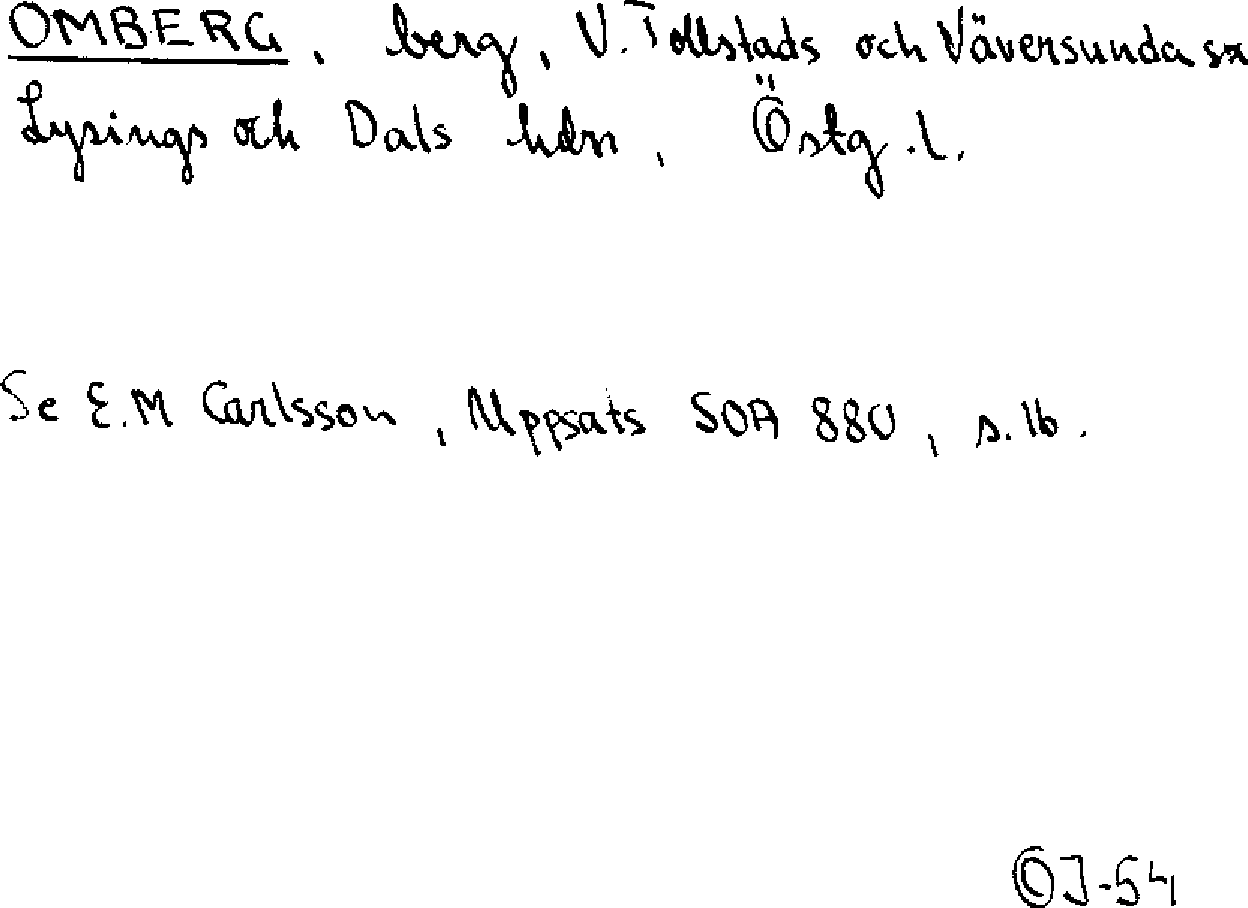 OMBERG, berg, V. Tollstads och Väversunda sn
Lysings och Dals hdn, Östg.l.
Se E.M Carlsson, Uppsats SOA 880, s.16.
OJ-54